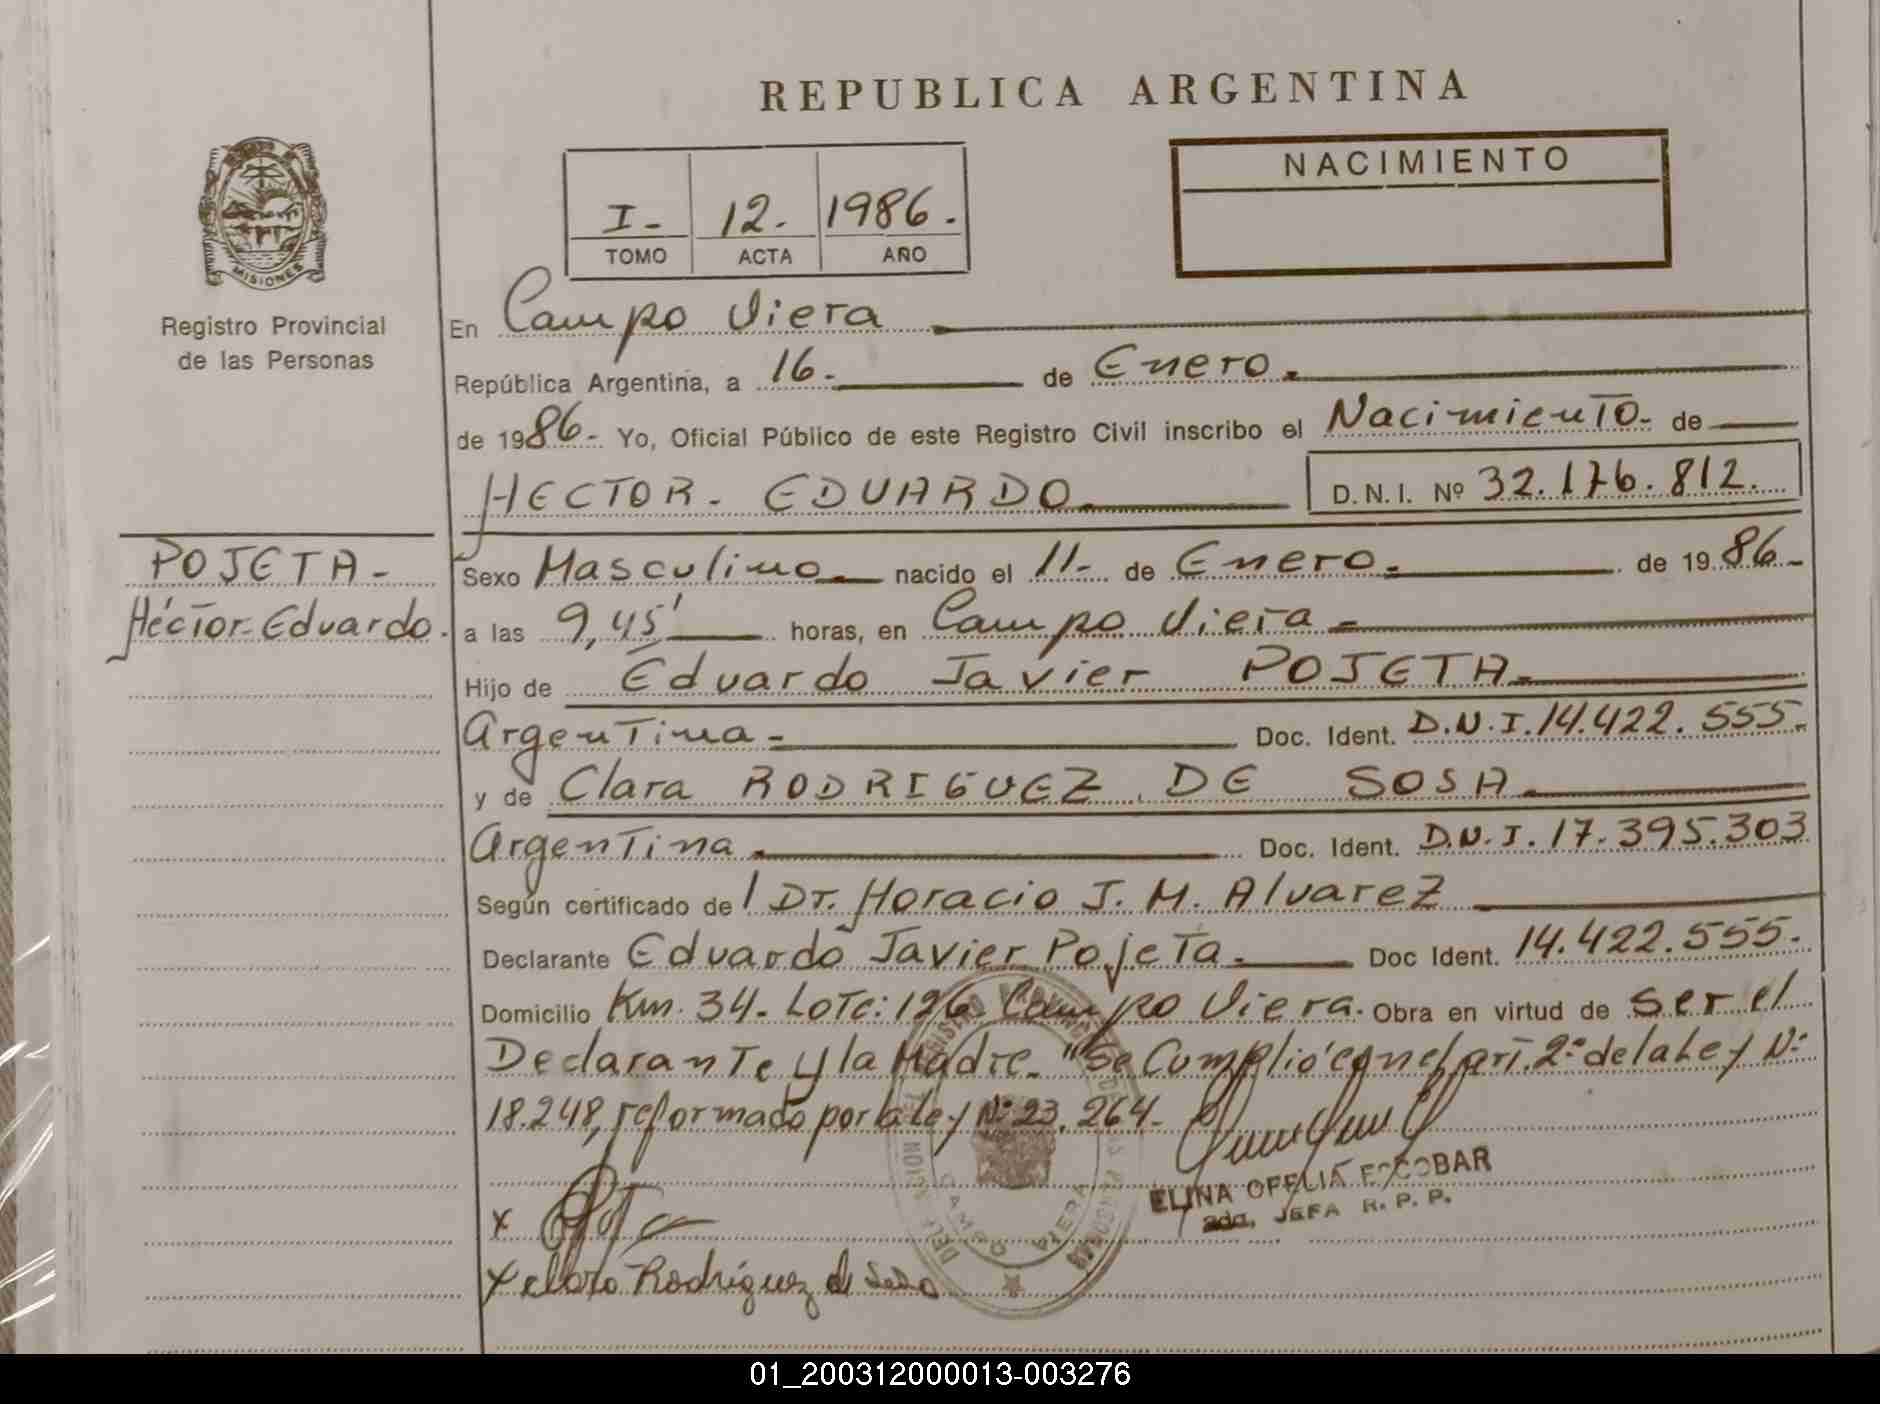 REPUBLICA ARGENTINA
NACIMIENTO
I- 12- 1986.
TOMO ACTA AÑO
MISIONES
Registro Provincial
de las Personas
En Campo Viera
República Argentina, a 16- de Enero.
de 1986- Yo, Oficial Público de este Registro Civil inscribo el Nacimiento- de
HECTOR- EDUARDO D.N.I. Nº 32.176.812.
POJETA-
Héctor-Eduardo.
Sexo Masculino nacido el 11- de Enero. de 1986-
a las 9,45' horas, en Campo Viera-
Hijo de Eduardo Javier POJETA-
Argentina- Doc. Ident. D.N.I. 14.422.555-
y de Clara RODRIGUEZ DE SOSA
Argentina Doc. Ident. D.N.I. 17.395.303
Según certificado de l Dr. Horacio J. M. Alvarez
Declarante Eduardo Javier Pojeta. Doc Ident. 14.422.555-
Domicilio Km. 34- Lote: 126 Campo Viera. Obra en virtud de ser el
Declarante y la Madre- "Se Cumplió con el art. 2º de la Ley Nº
18.248, reformado por la ley Nº 23.264-
ELINA OFELIA ESCOBAR
JEFA R. P. P.
CAMPO VIERA
x
x Clara Rodríguez de Sosa
01_200312000013-003276